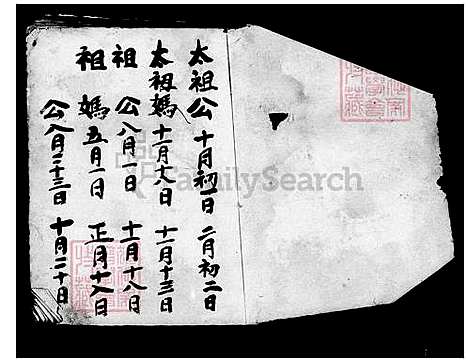 太祖公 十月初一日 二月初二日
太祖媽 十一月十八日 十二月十三日
祖公 八月一日 十一月十八日
祖媽 五月一日 正月十八日
公 八月二十三日 十月二十日
FamilySearch